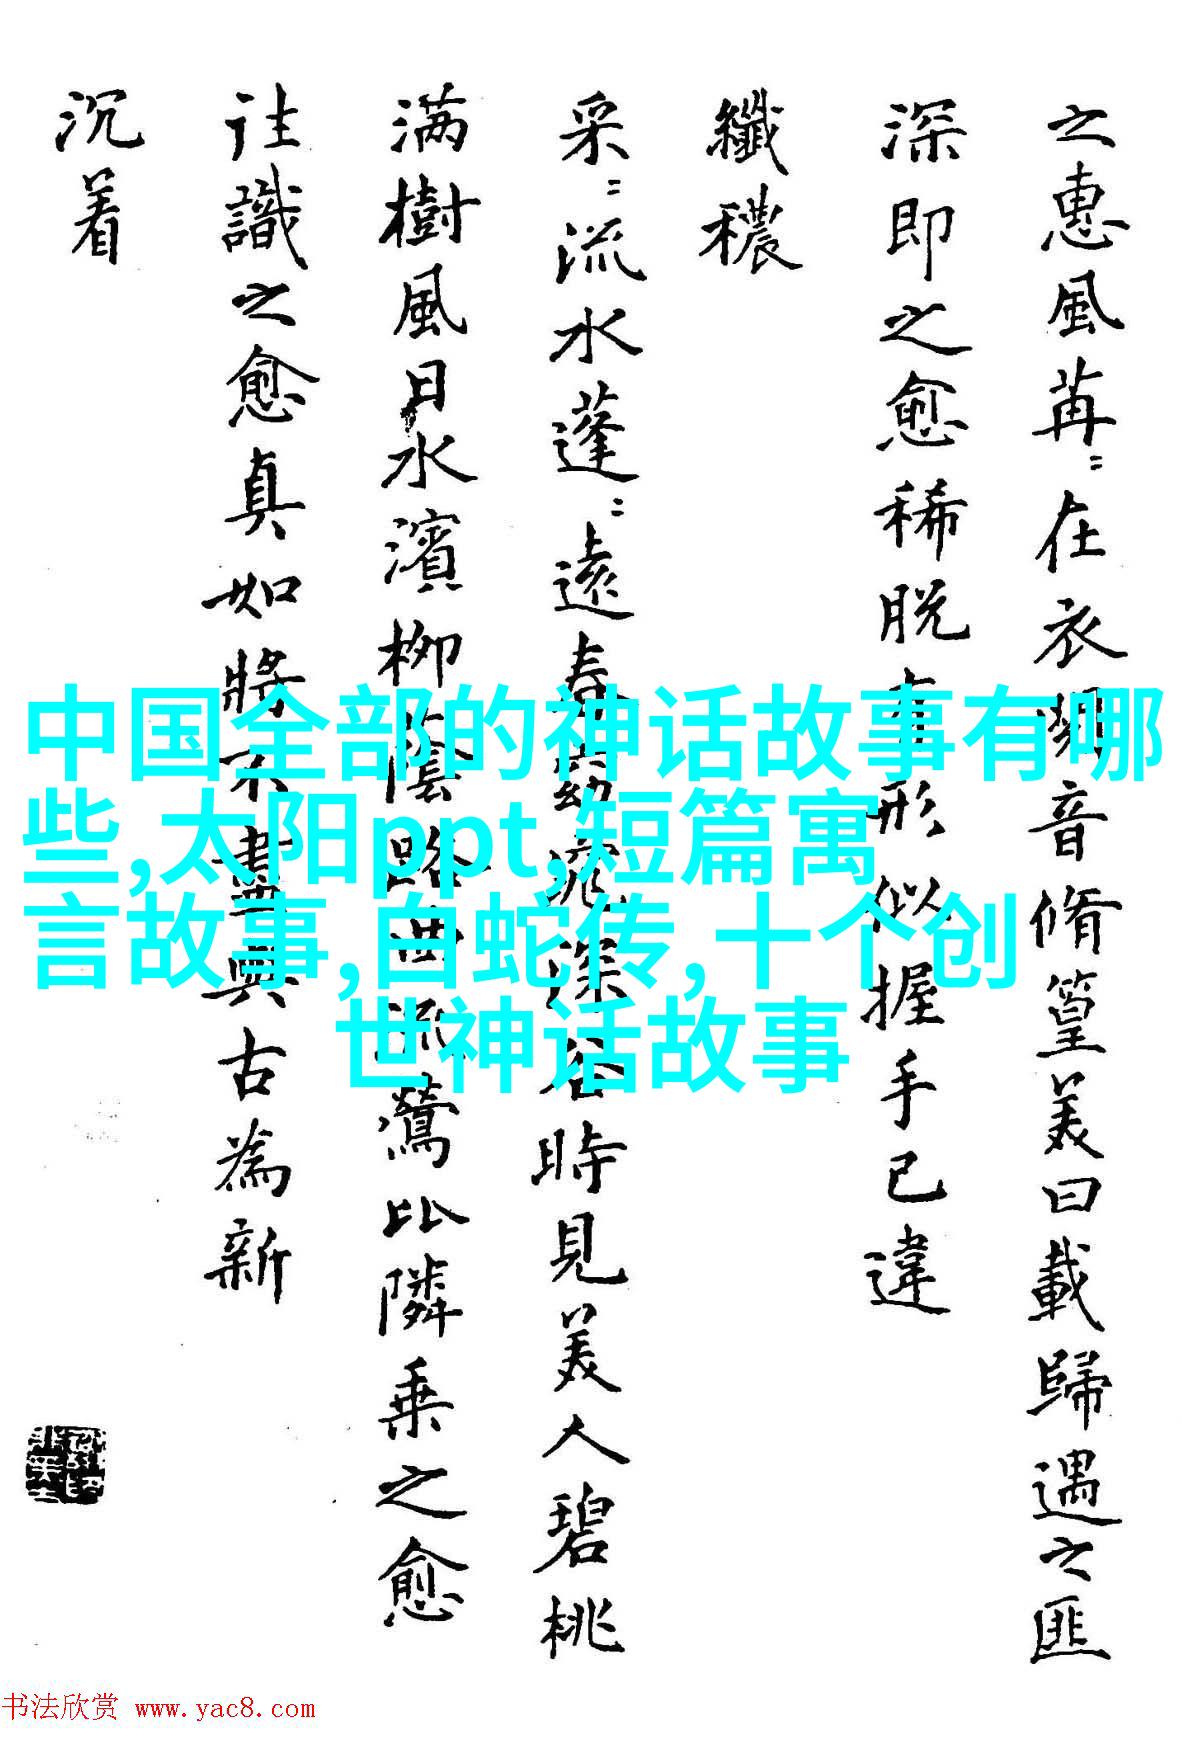 之惠風苒〻在衣閱音脩篁美曰載歸遇之匪
深即之愈稀脫有形似握手已違
纖穠
采〻流水蓬〻遠春窈窕深谷時見美人碧桃
满樹風日水濱柳陰路曲流鶯比隣乗之愈
往識之愈真如將不盡與古為新
沉着
中国全部的神话故事有哪
些,太阳ppt,短篇寓
言故事,白蛇传,十个创
世神话故事
书法欣赏 www.yac8.com